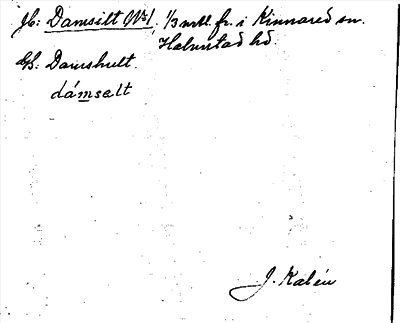 Jb: Damsilt No 1, 1/3 mtl. fr. i Kinnared sn.
Halmstad hd.
GS: Damshult.
dámsalt
J. Kalén